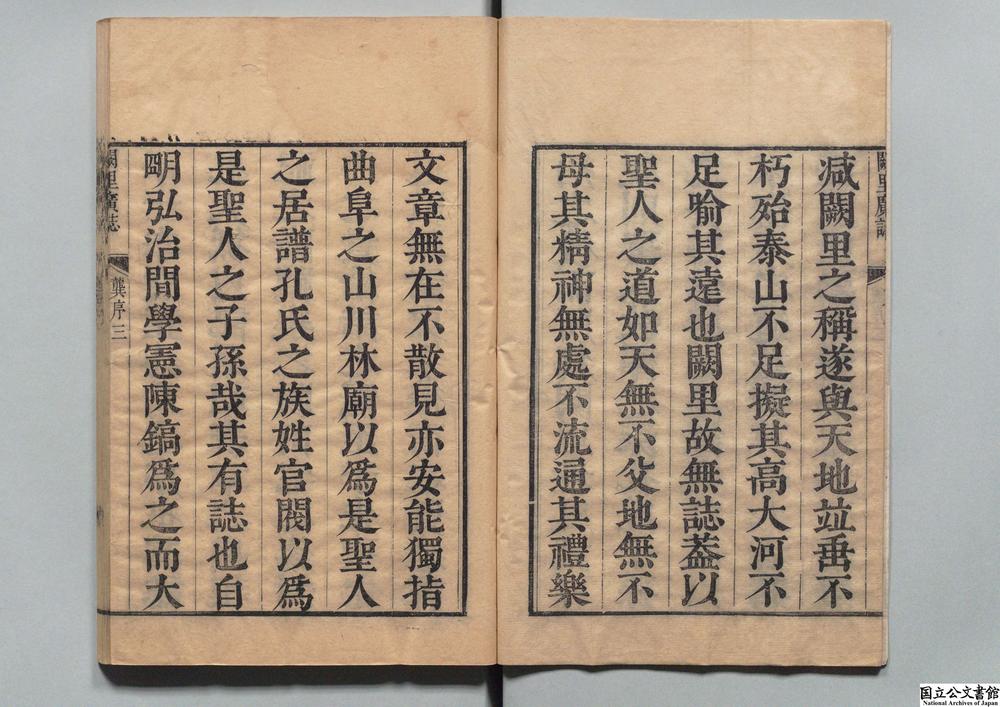 闕里廣誌
減闕里之稱遂與天地並垂不
朽殆泰山不足擬其高大河不
足喻其遠也闕里故無誌葢以
聖人之道如天無不父地無不
母其精神無處不流通其禮樂
文章無在不散見亦安能獨指
曲阜之山川林廟以爲是聖人
之居譜孔氏之族姓官閥以爲
是聖人之子孫哉其有誌也自
明弘治間學憲陳鎬爲之而大
闕里廣誌
龔序三
国立公文書館
National Archives of Japan